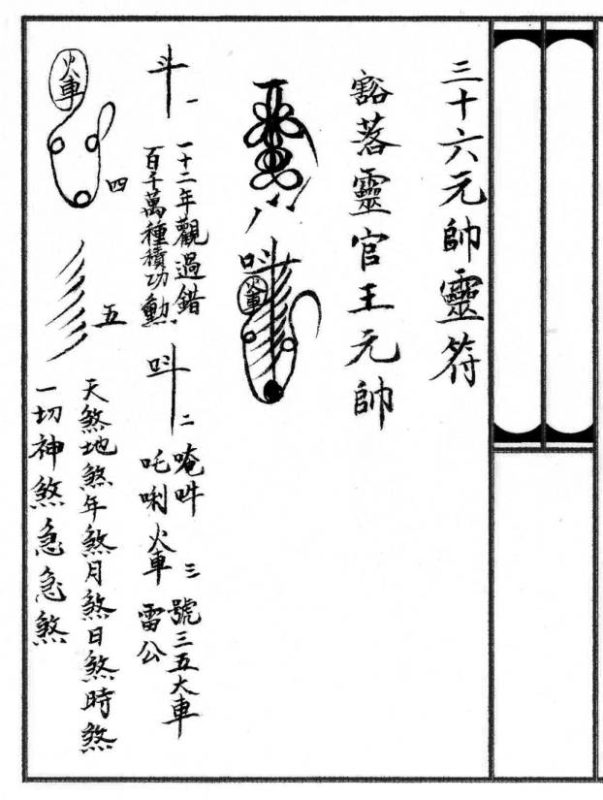 三十六元帥靈符
豁落靈官王元帥
呌
火車
斗 一
一十二年觀過錯
百千萬種積功勳
呌 二
唵吽
吒唎火車
三
號三五大車
雷公
火車
四
五
天煞地煞年煞月煞日煞時煞
一切神煞急急煞